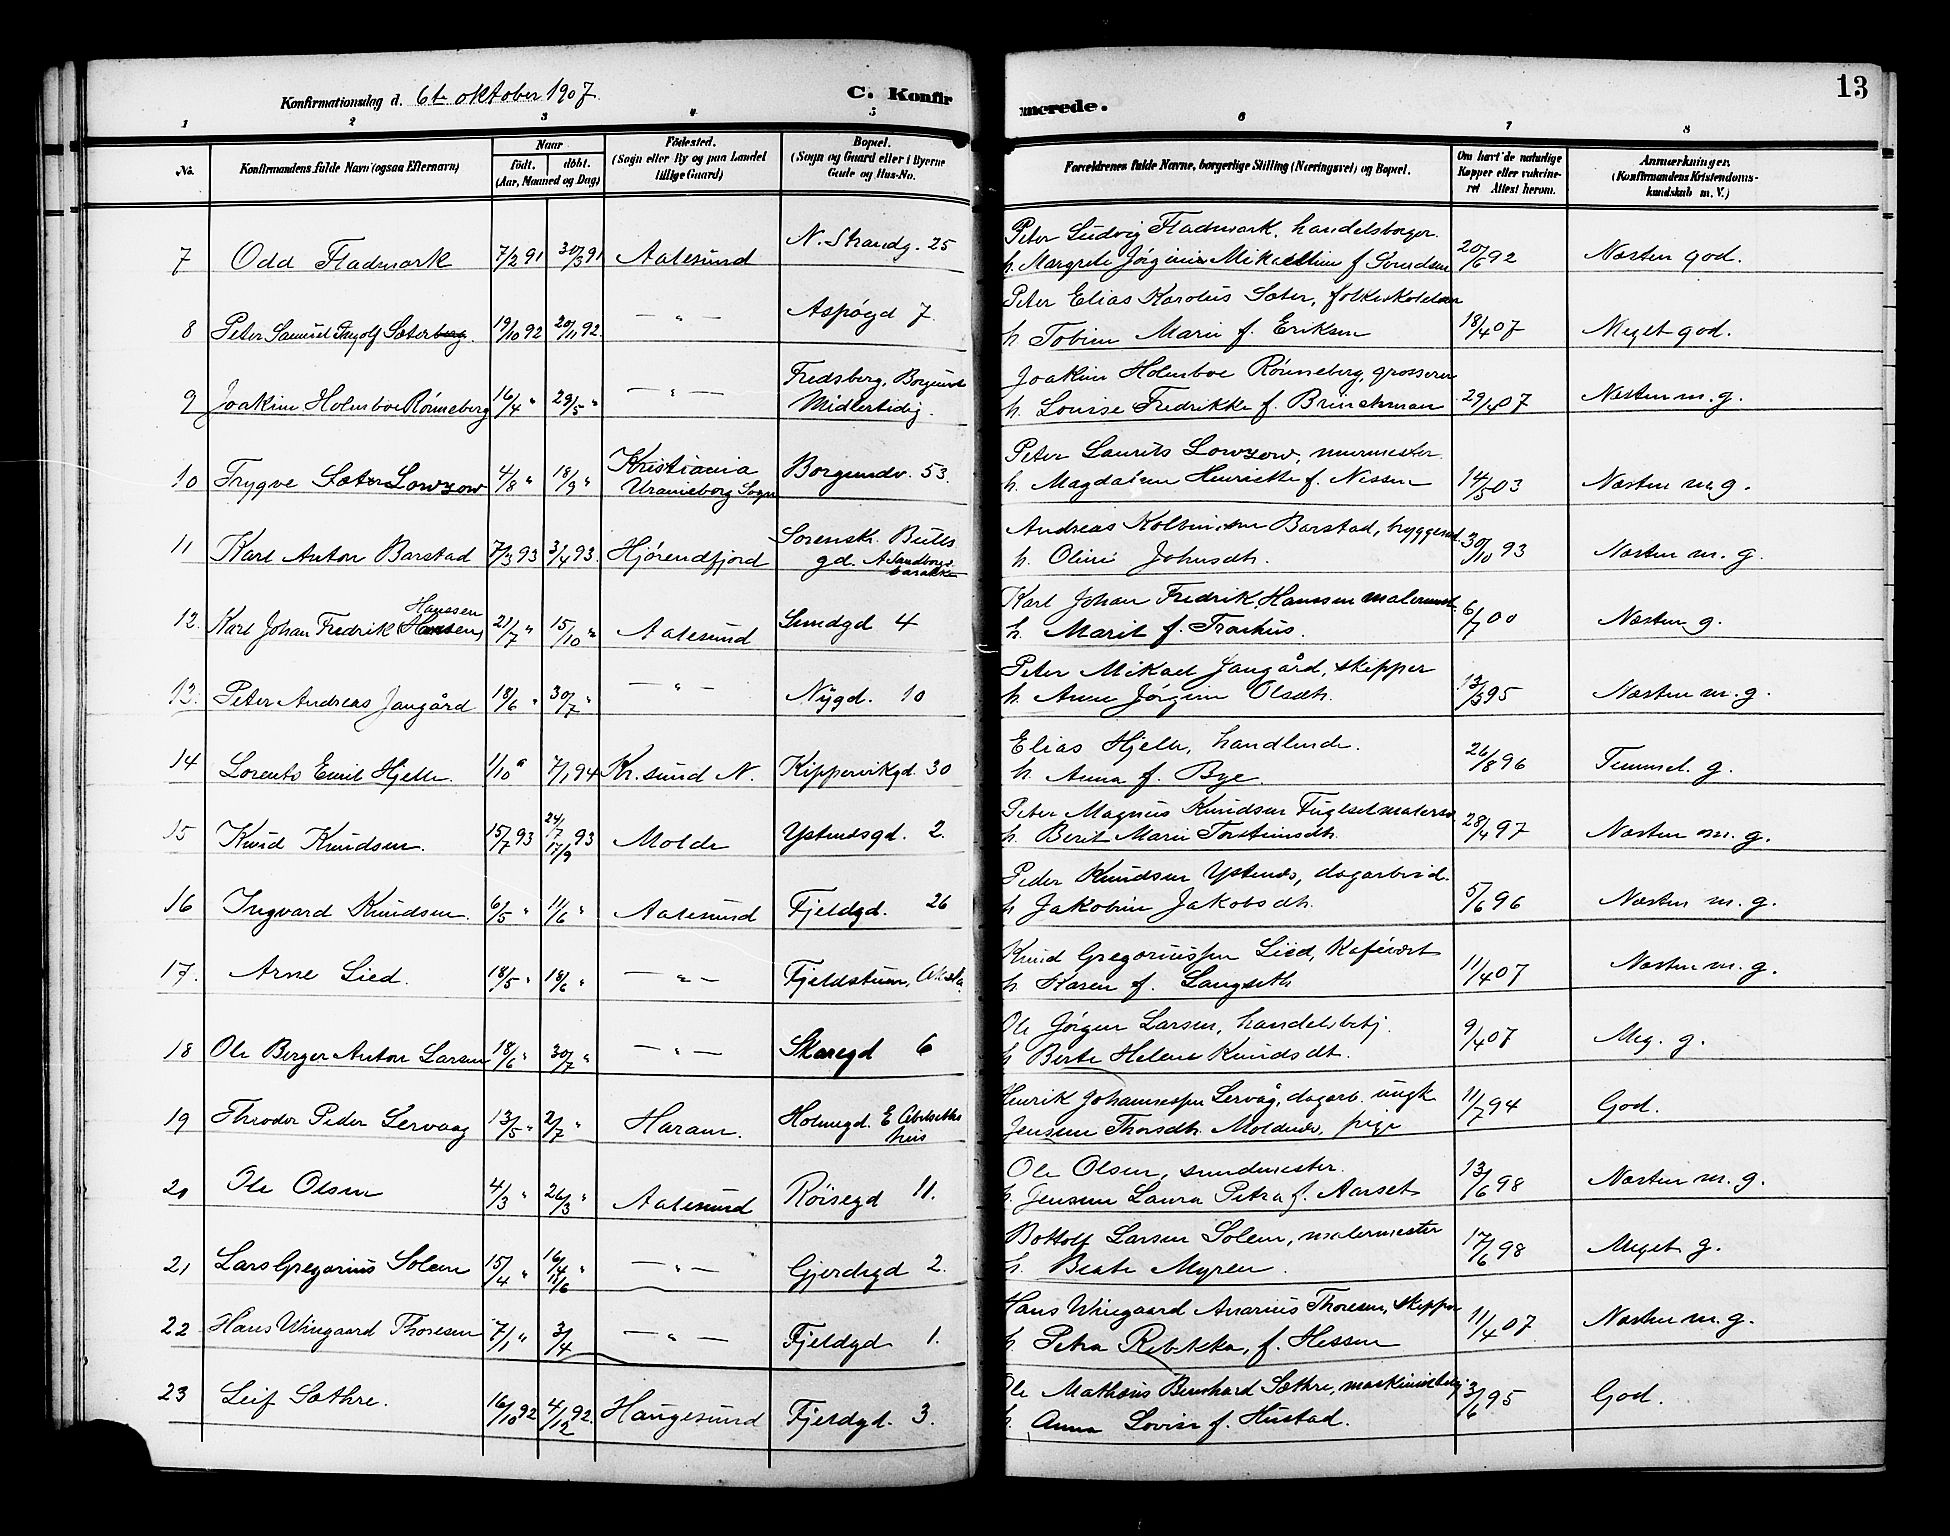 13
Konfirmationsdag d. 6te oktober 1907.
C. Konfirmerede.
1 2 3 4 5 6 7 8
No. Konfirmandens fulde Navn (ogsaa Efternavn)
Naar
født. døbt.
(Aar, Maaned og Dag)
Fødested.
(Sogn eller By og paa Landet
tillige Gaard)
Bopæl.
(Sogn og Gaard eller i Byerne
Gade og Hus-No.
Forældrenes fulde Navne, borgerlige Stilling (Næringsvei) og Bopæl.
Om havt de naturlige
Kopper eller vakcine-
ret Attest herom.
Anmærkninger.
(Konfirmandens Kristendoms-
kundskab m. V.)
7 Odd Fladmark 7/2 91 30/3 91 Aalesund N. Strandg. 25
Peter Ludvig Fladmark, handelsborger.
h. Margrete Jørgine Mikaeline f. 20/6 92 Næsten god.
8 Peter Samuel Ingolf Sæterberg 19/10 92 20/11 92. — " — Aspøgd 7.
Peter Elias Karolus Sæter,
h. Tobine Marie f. Eriksen 18/4 07 Meget god.
9 Joakim Holmboe Rønneberg 16/4 " 29/5 " — " — Fredsberg, Borgund
Midlertidig.
Joakim Holmboe Rønneberg, grosserer
h. Louise Fredrikke f. Brinchman 29/4 07 Næsten m. g.
10 Trygve Sæter Lowzow 4/8 " 18/9 " Kristiania
Uranieborg Sogn Borgundv. 53.
Peter Laurits Lowzow, murmester
h. Magdalene Henriette f. Nissen 14/5 03 Næsten m. g.
11 Karl Anton Barstad 7/3 93 3/4 93. Hjørendfjord Sorenskr. Bulls
gd. A. Sandborgs
barakke
Andreas Kolbeinsen Barstad,
h. Oline Johnsdtr. 30/10 93 Næsten m. g.
12. Karl Johan Fredrik Hansen
Hanssen 21/7 " 15/10 " Aalesund Smedgd 4
Karl Johan Fredrik Hanssen malermest.
h. Marit f. 6/7 00 Næsten g.
13. Peter Andreas Jangård 18/6 " 30/7 " — " — Nygd. 10
Peter Mikael Jangård, skipper
h. Anne Jørgine Olsdtr. 13/3 95 Næsten m. g.
14 Lorents Emil Hjelle. 1/10 " 7/1 94 Kr. sund N. Kippervikgd. 30
Elias Hjelle, handlende.
h. Anna f. Bye. 26/8 96 Temmel. g.
15 Knud Knudsen. 15/7 93 24/7 93
17/9 Molde Ystenesgd. 2.
Peter Magnus Knudsen Fuglset
h. Berit Marie Torsteinsdtr. 28/4 97 Næsten m. g.
16 Ingvard Knudsen. 6/5 " 11/6 " Aalesund Fjeldgd. 26
Peder Knudsen Ystenes, dagarbeid.
h. Jakobine Jakobsdtr. 5/6 96 Næsten m. g.
17. Arne Lied. 18/5 " 18/6 " — " — Fjeldstuen, Aksla.
Knud Gregoriussen Lied, Kafévært
h. Karen f. Langseth 11/4 07 Næsten m. g.
18 Ole Berger Anton Larsen 18/6 " 30/7 " — " — Skaregd 6
Ole Jørgen Larsen, handelsbetj.
h. Berte Helene Knudsdt. 9/4 07 Meg. g.
19 Theodor Peder Lervaag 13/5 " 2/7 " Haram. Holmegd. E. Abelseths
hus
Henrik Johannessen Lervåg, dagarb. ungk.
Jensine Thorsdtr. Moldnes, pige 11/7 94 God.
20 Ole Olsen 4/3 " 26/3 " Aalesund Røisegd 11.
Ole Olsen, smedmester.
h. Jensine Laura Petra f. Aarset 13/6 98 Næsten m. g.
21 Lars Gregorius Solem 15/4 " 16/4 "
11/6 — " — Gjerdegd 2.
Bottolf Larsen Solem, malermester
h. Beate Myren. 17/6 98 Meget g.
22 Hans Wingaard Thoresen 7/1 " 3/4 — " — Fjeldgd 1.
Hans Wingaard Anarius Thoresen, skipper
h. Petra Rebekka, f. Hessen 11/4 07 Næsten m. g.
23 Leif Sæthre. 16/10 92 4/12 92. Haugesund Fjeldgd. 3.
Ole Mathæus Bernhard Sæthre, maskinistbetj.
h. Anna Lovise f. Hustad. 3/6 95 God.